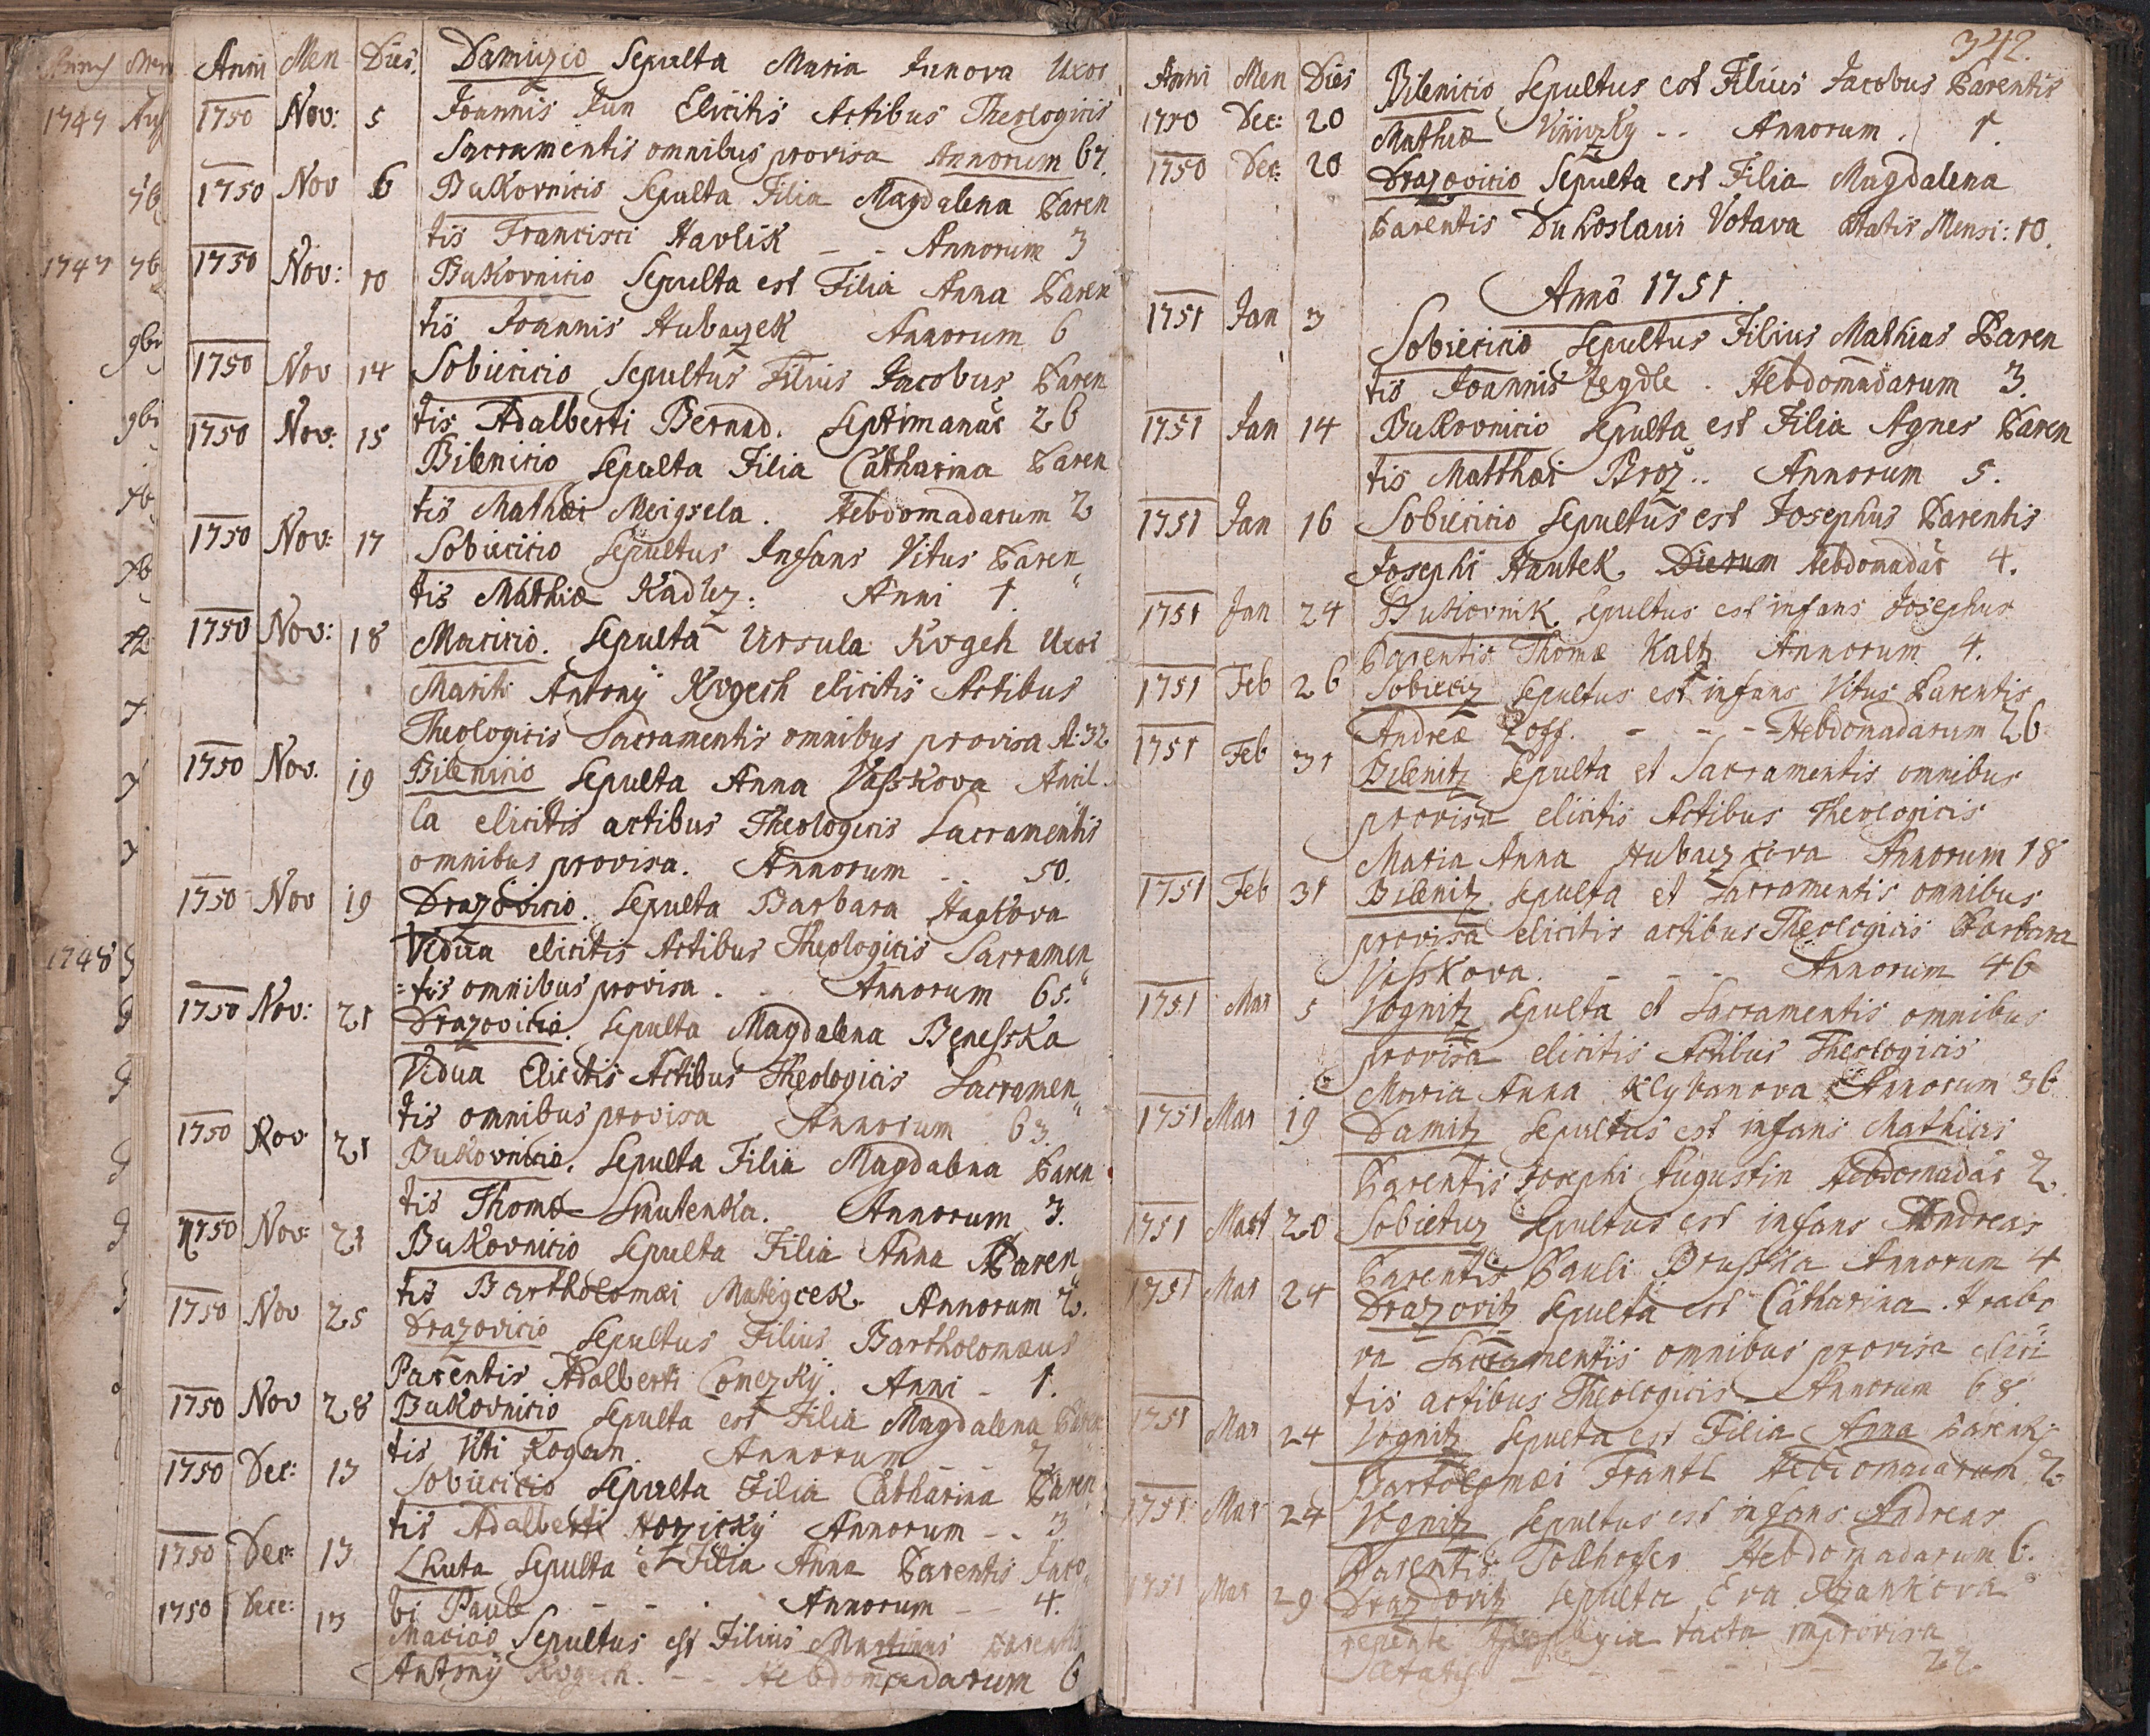 Anni Men Dies. Damiczio Sepulta Maria Junova Uxor
1750 Nov: 5 Joannis Jun Elicitis Actibus Theologicis
Sacramentis omnibus provisa Annorum 67.
1750 Nov 6 Bukovnicio Sepulta Filia Magdalena Paren
tis Francisci Havlik - - Annorum 3
1750 Nov: 10 Bukovnicio Sepulta est Filia Anna Paren
tis Joannis Hubaczek Annorum 6
1750 Nov 14 Sobiecicio Sepultus Filius Jacobus Paren
tis Adalberti Bernad. Septimanar 26
1750 Nov: 15 Bilenicio Sepulta Filia Catharina Paren
tis Mathæi Meigsela. Hebdomadarum 2
1750 Nov: 17 Sobiecicio Sepultus Infans Vitus Paren
tis Mathiæ Kadlez: Anni 1.
1750 Nov: 18 Macicio. Sepulta Ursula Kogeh Uxor
Mariti Antony Kogesh elicitis Actibus
Theologicis Sacramentis omnibus provisa A: 32
1750 Nov. 19 Bilenicio Sepulta Anna Vasskova Ancil-
la elicitis actibus Theologicis Sacramentis
omnibus provisa. Annorum .. 50.
1750 Nov 19 Drazovicio. Sepulta Barbara Hagkova
Vidua elicitis Actibus Theologicis Sacramen
=tis omnibus provisa. Annorum 65.
1750 Nov: 21 Drazovicio. Sepulta Magdalena Benesska
Vidua Elicitis Actibus Theologicis Sacramen
tis omnibus provisa Annorum 63.
1750 Nov 21 Bukovnicio. Sepulta Filia Magdalena Paren
tis Thomæ Smutenka. Annorum 3.
1750 Nov: 21 Bukovnicio Sepulta Filia Anna Paren
tis Bartholomæi Mateycek. Annorum 2.
1750 Nov 25 Drazovicio Sepultus Filius Bartholomæus
Parentis Adalberti Comezky. Anni - 1.
1750 Nov 28 Bukovnicio Sepulta est Filia Magdalena Paren
tis Viti Kogan. Annorum - - 2
1750 Dec: 13 Sobiecicio Sepulta Filia Catharina Paren
tis Adalberti Hozicky Annorum - - 3
1750 Dec: 13 Lhuta Sepulta e Filia Anna Parentis Jaco
bi Paule - - - Annorum - - 4.
1750 Dece: 13 Macicio Sepultus est Filius Martinus Parentis
Antony Kogesh. - Hebdomadarum 6
342.
Anni Men Dies Bilenicio Sepultus est Filius Jacobus Parentis
1750 Dec: 20 Mathiæ - - Annorum. 1.
1750 Dec: 20 Drazovicio Sepulta est Filia Magdalena
Parentis Duhoslavi Votava ætatis Mensi: 10.
Anno 1751.
1751 Jan 3 Sobiecicio Sepultus Filius Mathias Paren
tis Joannis Zegdle. Hebdomadarum 3.
1751 Jan 14 Bukovnicio Sepulta est Filia Agnes Paren
tis Matthæi Broz.. Annorum 5.
1751 Jan 16 Sobiecicio Sepultus est Josephus Parentis
Josephi Hautek. Dierum Hebdomadar 4.
1751 Jan 24 Bukovnik. Sepultus est infans Josephus
Parentis Thomæ Kaltz Annorum 4.
1751 Feb 26 Sobiecz Sepultus est infans Vitus Parentis
Andreæ Zoff. - - - Hebdomadarum 26
1751 Feb 31 Bilenitz Sepulta et Sacramentis omnibus
provisa elicitis Actibus Theologicis
Maria Anna Hubaczkova Annorum 18
1751 Feb 31 Bilenitz. Sepulta et Sacramentis omnibus
provisa elicitis actibus Theologicis Barbara
Vasskova. - - - Annorum 46
1751 Mar 5 Vognitz Sepulta et Sacramentis omnibus
provisa elicitis Actibus Theologicis
Maria Anna Klybanova Annorum 36
1751 Mar 19 Damitz Sepultus est infans Mathias
Parentis Josephi Augustin Hebdomadar 2.
1751 Mart 20 Sobietuz Sepultus est infans Andreas
Parentis Pauli Brusska Annorum 4
1751 Mar 24 Drazovitz Sepulta est Catharina Hrabo
va Sacramentis omnibus provisa elici
tis actibus Theologicis Annorum 68.
1751 Mar 24 Vognitz Sepulta est Filia Anna Parenti:
Bartolomæi Frantl Hebdomadarum 2.
1751 Mar 24 Vognitz Sepultus est infans Andreas
Parentis Hebdomadarum 6.
1751 Mar 29 Drazdovitz Sepulta Eva
repente Apoplexia tacta improvisa
Ætatis - - - - - 22.